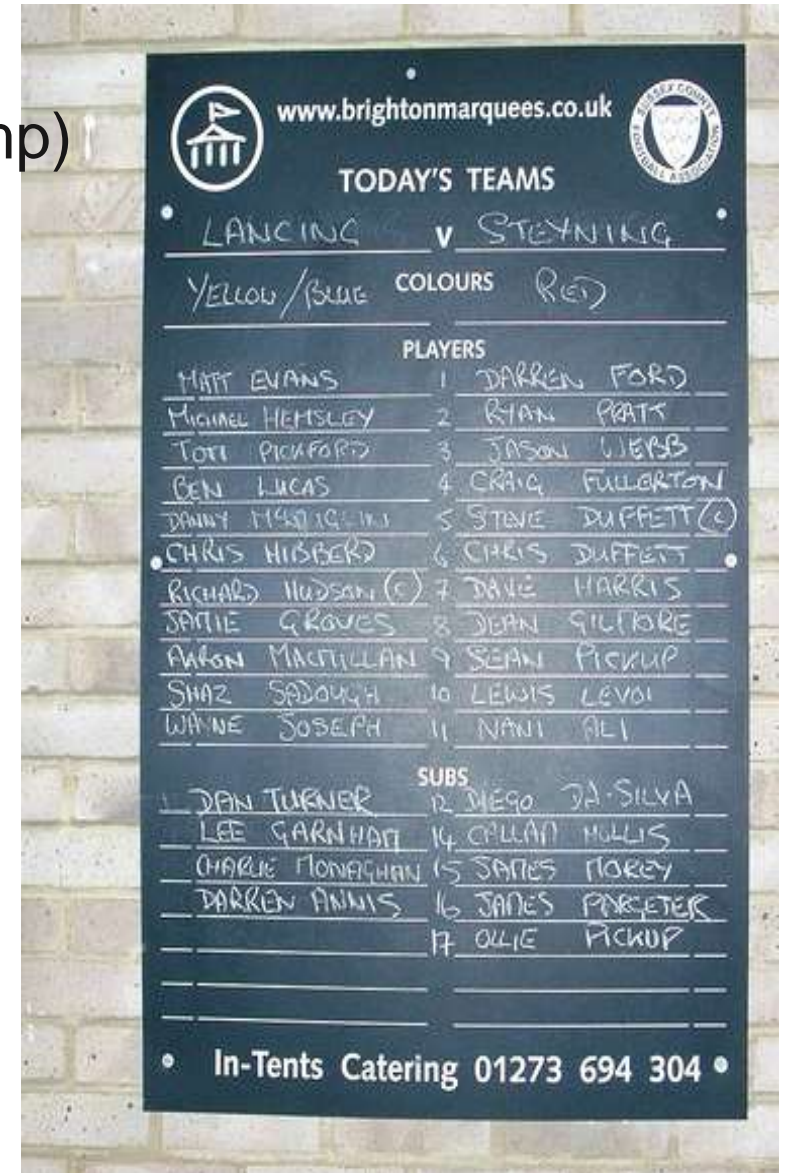 np)
www.brightonmarquees.co.uk
SUSSEX COUNTY FOOTBALL ASSOCIATION
TODAY'S TEAMS
LANCING v STEYNING
YELLOW/BLUE COLOURS RED
PLAYERS
MATT EVANS 1 DARREN FORD
MICHAEL HEMSLEY 2 RYAN PRATT
TOM PICKFORD 3 JASON WEBB
BEN LUCAS 4 CRAIG FULLERTON
DANNY 5 STEVE DUFFETT (C)
CHRIS HIBBERD 6 CHRIS DUFFETT
RICHARD HUDSON (C) 7 DAVE HARRIS
JAMIE GROVES 8 DEAN GILMORE
AARON MACMILLAN 9 SEAN PICKUP
SHAZ SADOUGH 10 LEWIS LEVOI
WAYNE JOSEPH 11 NANI ALI
SUBS
DAN TURNER 12 DIEGO DA-SILVA
LEE GARNHAM 14 CALLAM HOLLIS
CHARLIE MONAGHAN 15 JAMES MOREY
DARREN ANNIS 16 JAMES PARGETER
17 OLLIE PICKUP
In-Tents Catering 01273 694 304